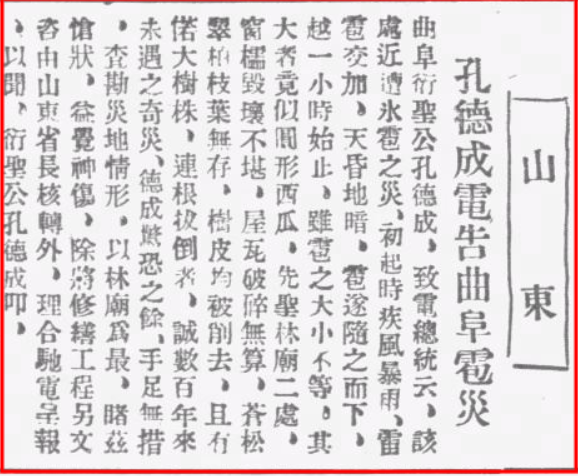 山東
孔德成電告曲阜雹災
曲阜衍聖公孔德成、致電總統云、該
處近遭氷雹之災、初起時疾風暴雨、雷
雹交加、天昏地暗、雹遂隨之而下、
越一小時始止、雖雹之大小不等。其
大者竟似圓形西瓜、先聖林廟二處、
窗櫺毀壞不堪、屋瓦破碎無算、蒼松
翠柏枝葉無存、樹皮均被削去、且有
偌大樹株、連根拔倒者、誠數百年來
未遇之奇災、德成驚恐之餘、手足無措
、查勘災地情形、以林廟爲最、睹茲
愴狀、益覺神傷、除將修繕工程另文
咨由山東省長核轉外、理合馳電呈報
、以聞、衍聖公孔德成叩、